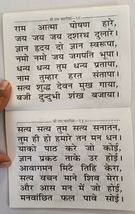 राम आत्मा पोषण हारे,
जय जय जय दशरथ दुलारे।
ज्ञान हृदय दो ज्ञान स्वरूपा,
नमो नमो जय जगपति भूपा।
धन्य धन्य तुम धन्य प्रतापा,
नाम तुम्हार हरत संतापा।
सत्य शुद्ध देवन मुख गाया,
बजी दुन्दुभी शंख बजाया।
सत्य सत्य तुम सत्य सनातन,
तुम ही हो हमारे तन मन धन।
याको पाठ करे जो कोई,
ज्ञान प्रकट ताके उर होई।
आवागमन मिटै तिहि केरा,
सत्य वचन माने शिव मेरा।
और आस मन में जो होई,
मनवांछित फल पावे सोई।